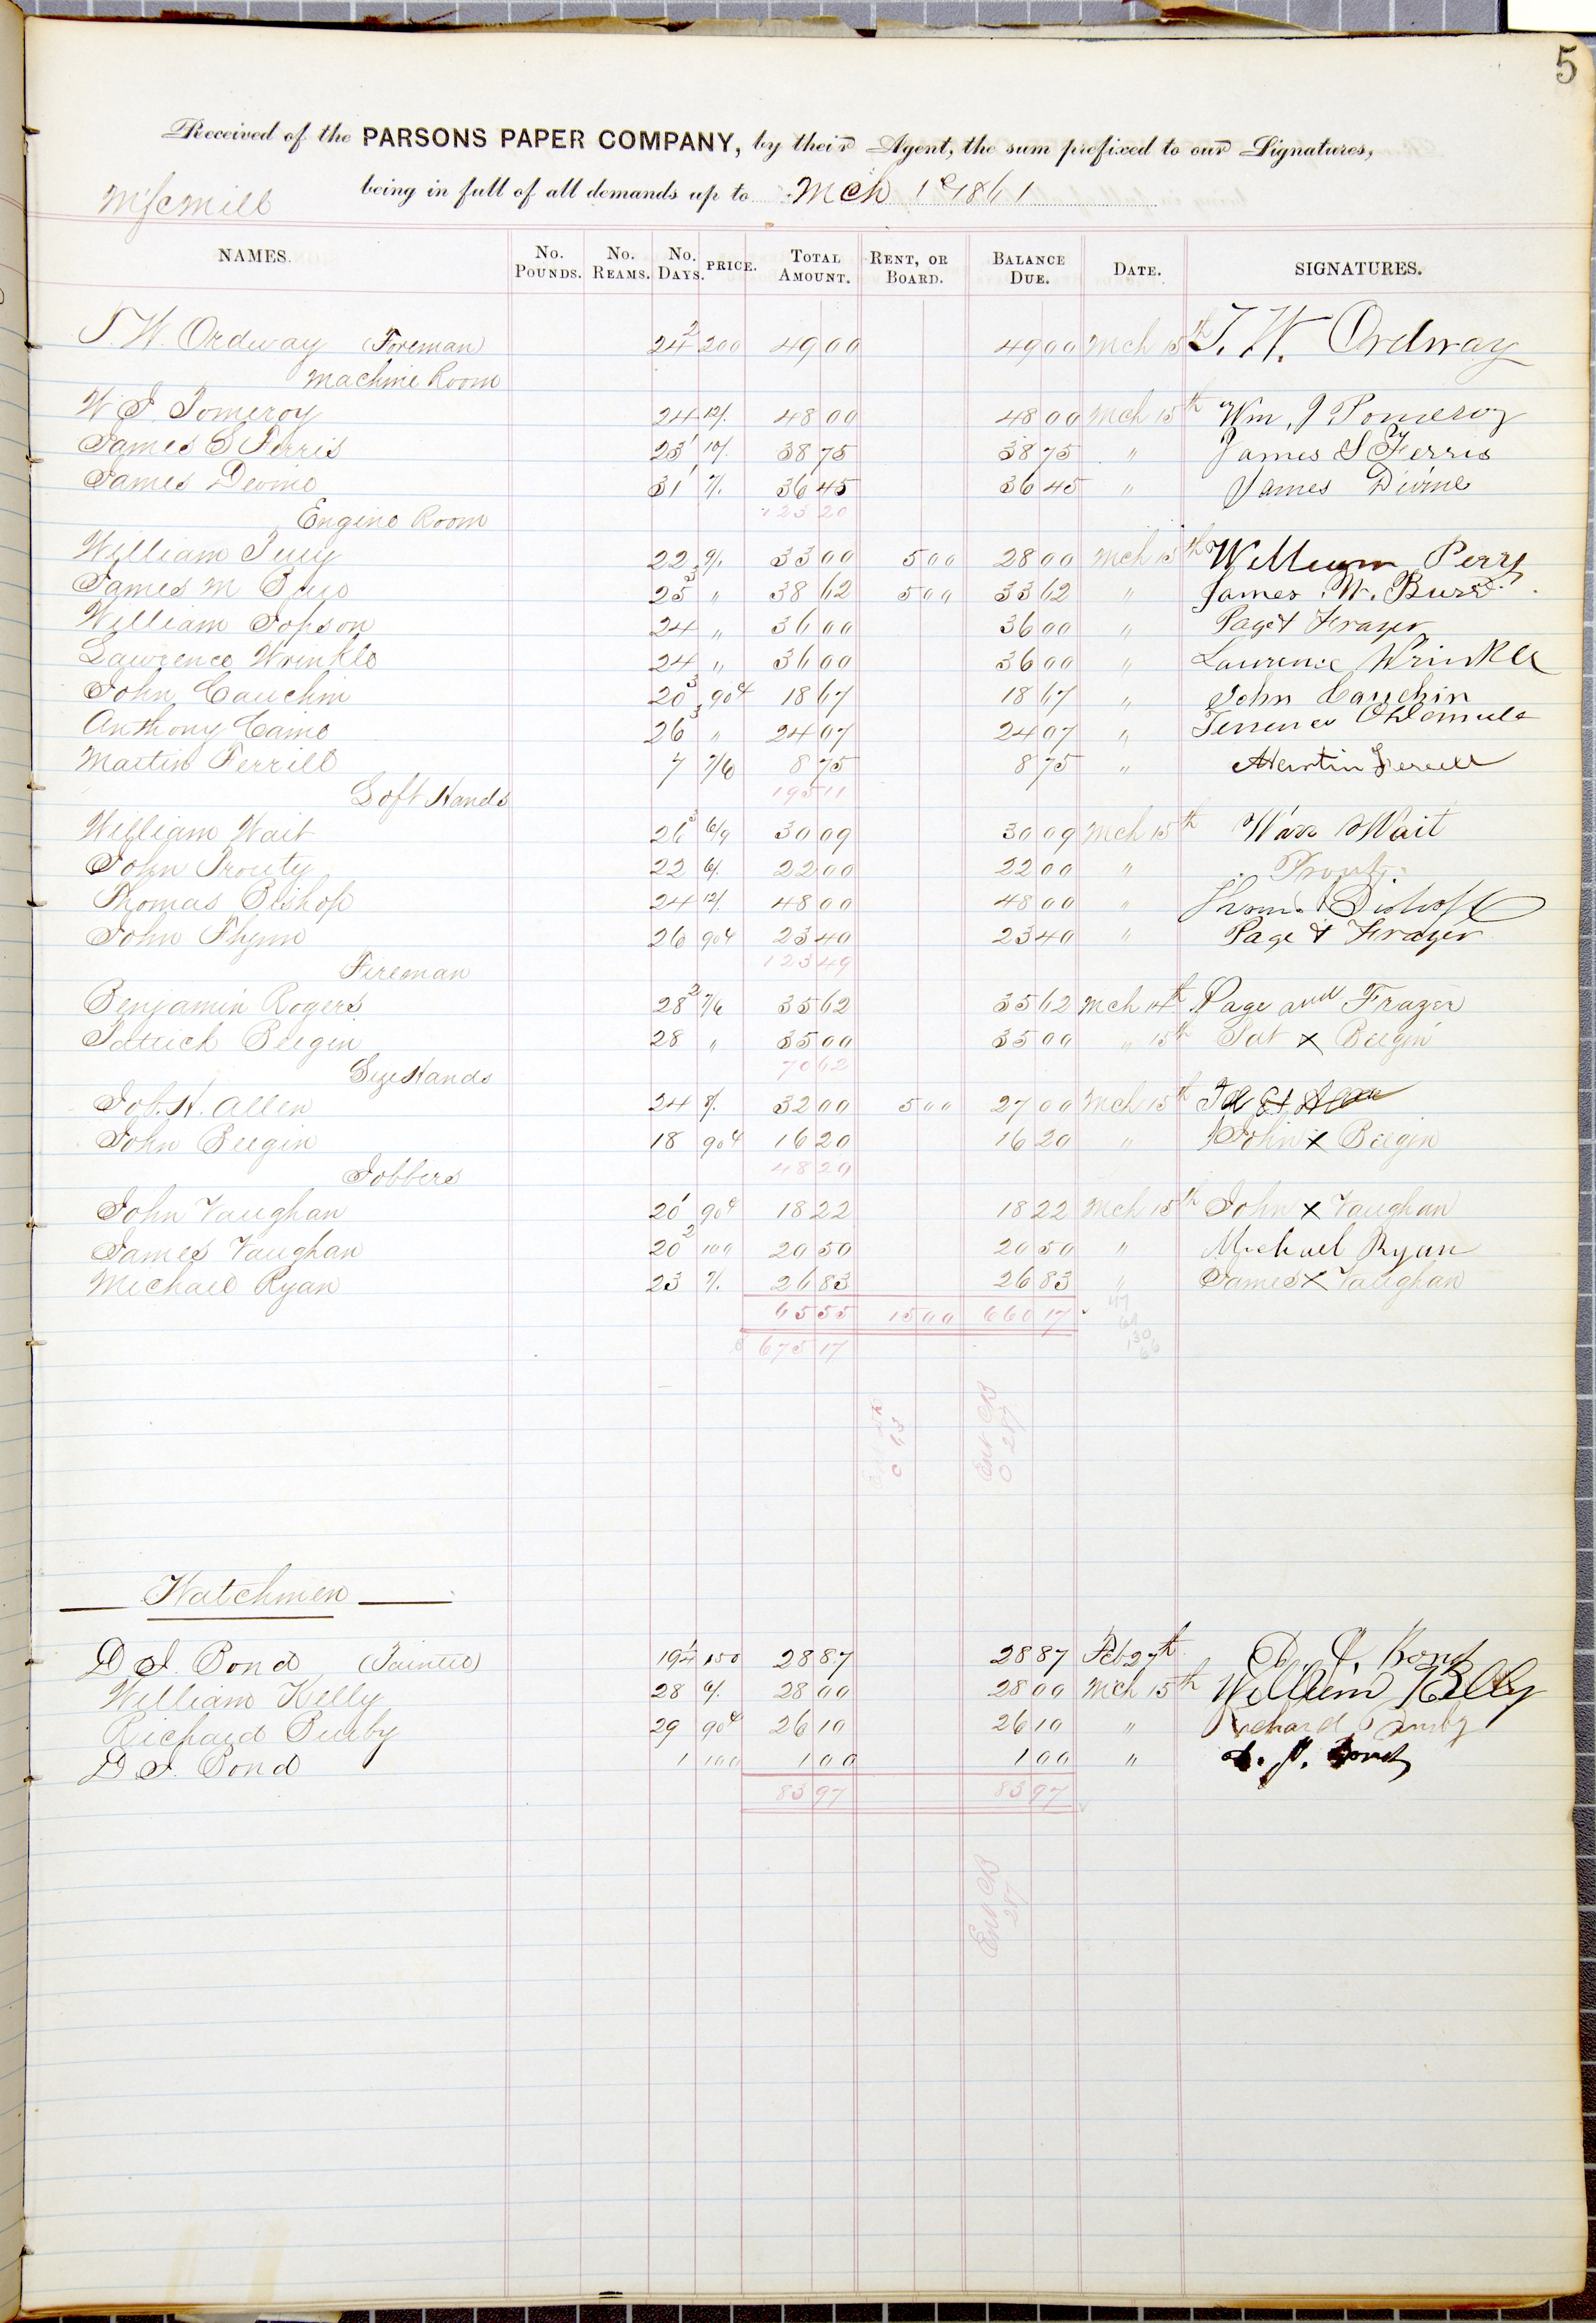 5
Received of the PARSONS PAPER COMPANY, by their Agent, the sum prefixed to our Signatures,
being in full of all demands up to Mch 1st 1861
NAMES. No. POUNDS. No. REAMS. No. DAYS. PRICE. TOTAL AMOUNT. RENT, OR BOARD. BALANCE DUE. DATE. SIGNATURES.
J. W. Ordway (Foreman) 24 2 200 49 00 49 00 Mch 15th J. W. Ordway
Machine Room
W J Pomeroy 24 12/. 48 00 48 00 Mch 15th Wm. J Pomeroy
James S Ferris 23 1 10/. 38 75 38 75 " James S Ferris
James Devine 31 1 7/. 36 45 36 45 " James Divine
Engine Room 123 20
William Perry 22 9/. 33 00 5 00 28 00 Mch 15th William Perry
James M 25 3 " 38 62 5 00 33 62 " James
William Jopson 24 " 36 00 36 00 " Page & Frazer
Lawrence Wrinkle 24 " 36 00 36 00 " Laurence Wrinkle
John Cauchin 20 3 90¢ 18 67 18 67 " John Cauchin
Anthony Caine 26 3 " 24 07 24 07 " Terrence
Martin Ferrill 7 7/6 8 75 8 75 " Martin
Loft Hands 195 11
William Wait 26 3 6/9 30 09 30 09 Mch 15th Wait
John Prouty 22 6/. 22 00 22 00 " Prouty
Thomas Bishop 24 12/. 48 00 48 00 " Bishop
John Flynn 26 90¢ 23 40 23 40 " Page & Frazer
Fireman 123 49
Benjamin Rogers 28 2 7/6 35 62 35 62 Mch 14th Page and Frazer
Patrick Beegin 28 " 35 00 35 00 " 15th Pat x Beegin
Size Hands 70 62
Job. H. Allen 24 8/. 32 00 5 00 27 00 Mch 15th
John Beegin 18 90¢ 16 20 16 20 " John x Beegin
Jobbers 48 20
John Vaughan 20 1 90¢ 18 22 18 22 Mch 15th John x Vaughan
James Vaughan 20 2 100 20 50 20 50 " Michael Ryan
Michael Ryan 23 7/. 26 83 26 83 " James x Vaughan
65 55 15 00 660 17
675 17
Ent CB
287
Watchmen
D J. Bond (Painted) 19 1/4 150 28 87 28 87 Feb 27th D. J. Bond
William Kelly 28 6/. 28 00 28 00 Mch 15th William Kelly
Richard Burby 29 90¢ 26 10 26 10 " Richard
D J. Bond 1 100 1 00 1 00 " D. J. Bond
83 97 83 97
Ent CB
287